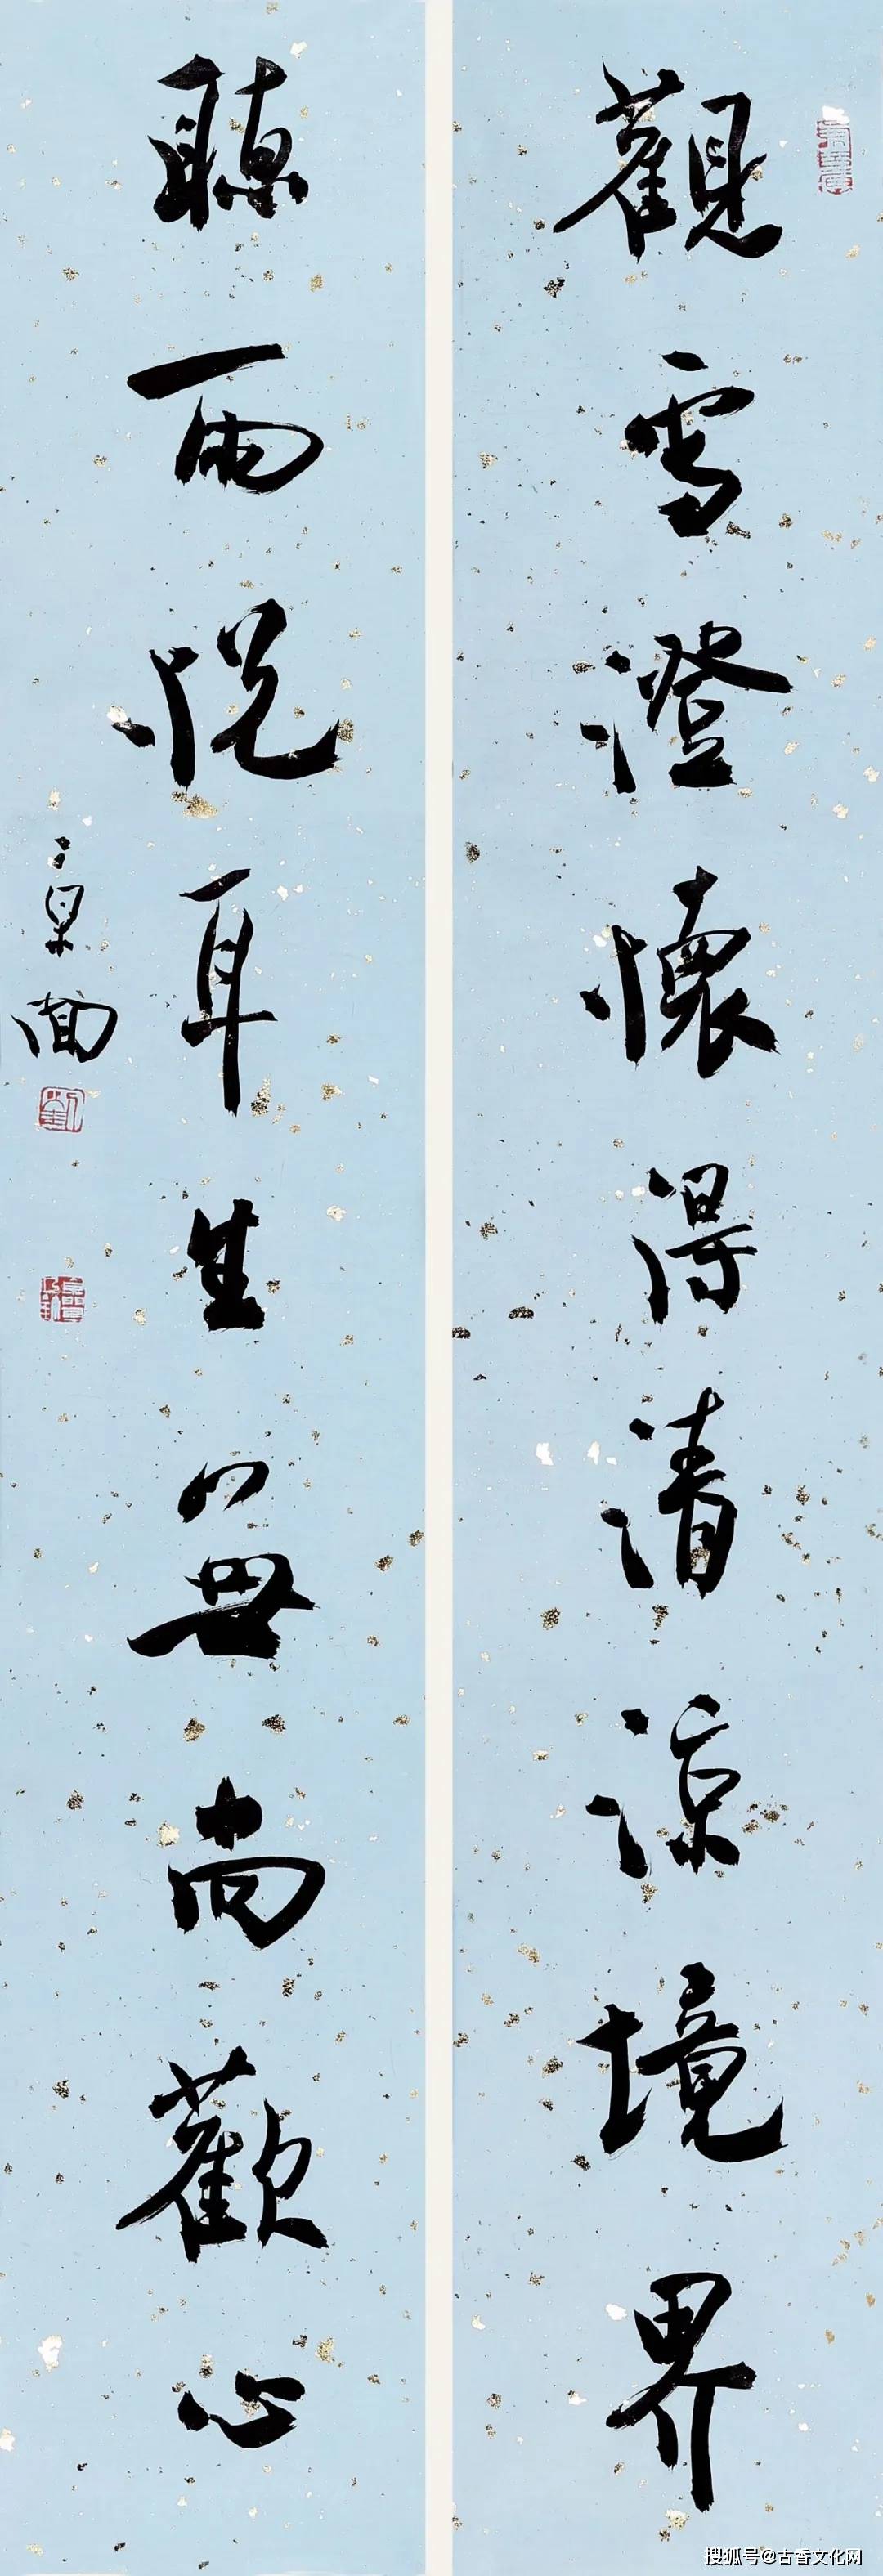 觀雪澄懷得清涼境界
聽雨悅耳生無尚歡心
搜狐号@古香文化网